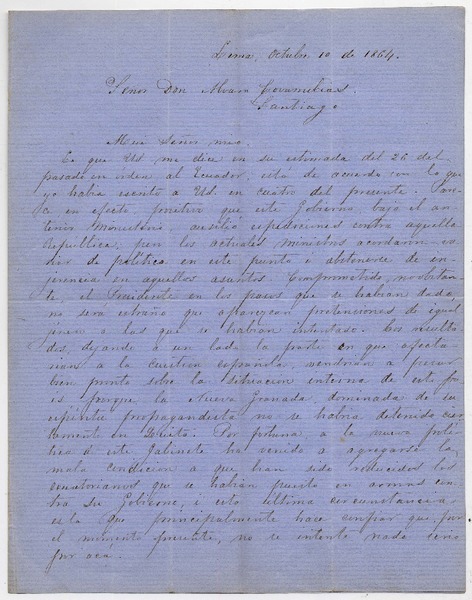 Lima, Octubre 10 de 1864.
Señor Don Alvaro Covarrubias.
Santiago
Mui Señor mio.
Lo que Ud. me dice en su estimada del 26 del
pasado en órden al Ecuador, está de acuerdo con lo que
yo habia escrito a Ud. en cuatro del presente.
en efecto positivo que este Gobierno, bajo el an-
terior Ministerio, auxilió espediciones contra aquella
República, pero los actuales ministros acordaron
de política en este punto i abstenerse de in-
jerencia en aquellos asuntos. Comprometido, no obstan-
te, el Presidente en los pasos que se habian dado,
no será estraño que aparezcan pretenciones de igual
jénero a las que se habian intentado. Los resulta-
dos, dejando a un lado la parte en que afecta-
rian a la cuestion española, vendrian a pesar
bien pronto sobre la situacion interna de este pa-
is porque, la Nueva Granada, dominada de su
espíritu propagandista no se habria detenido cier-
tamente en Quito. Por fortuna a la nueva polí-
tica de este Gabinete ha venido a agregarse la
mala condicion a que han sido reducidos los
ecuatorianos que se habian puesto en armas con-
tra su Gobierno, i esta última circunstancia
es la que principalmente hace confiar que, por
el momento presente, no se intente nada serio
por acá.